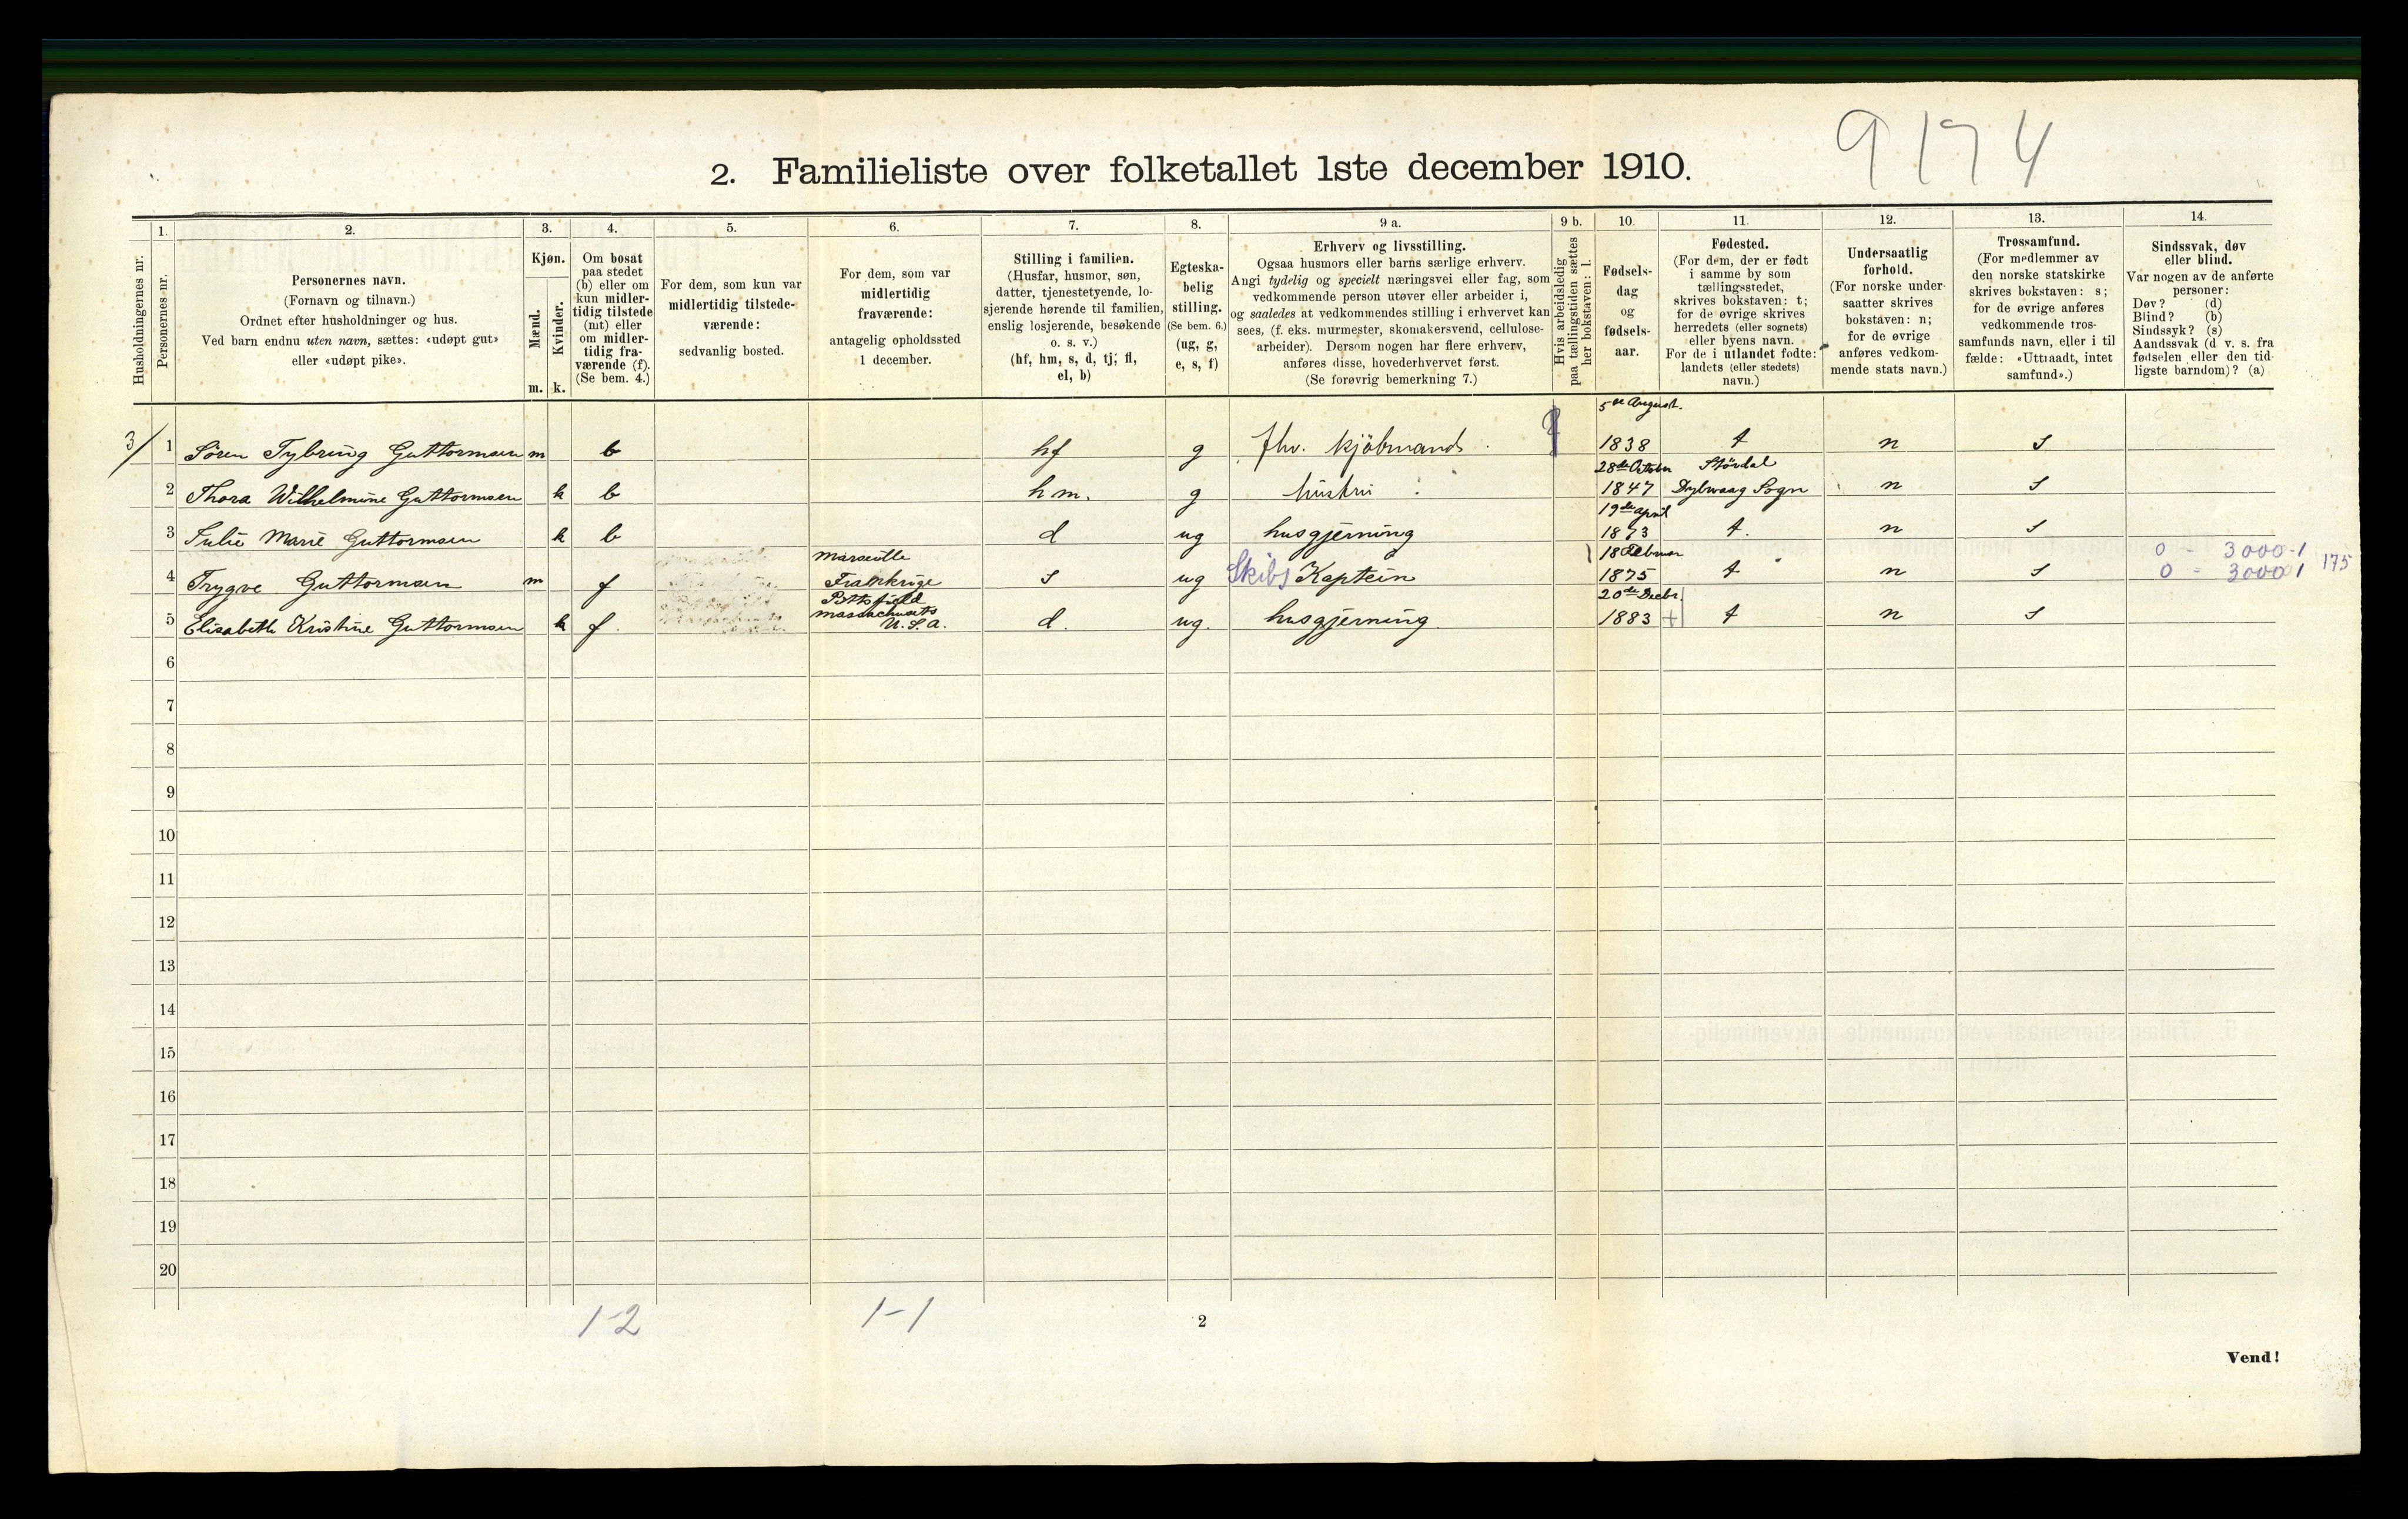 9174
2. Familieliste over folketallet 1ste december 1910.
1. 2. 3. 4. 5. 6. 7. 8. 9 a. 9 b. 10. 11. 12. 13. 14.
Husholdningernes nr.
Personernes nr.
Personernes navn.
(Fornavn og tilnavn.)
Ordnet efter husholdninger og hus.
Ved barn endnu uten navn, sættes: «udøpt gut»
eller «udøpt pike».
Kjøn.
Mænd.
Kvinder.
m. k.
Om bosat
paa stedet
(b) eller om
kun midler-
tidig tilstede
(mt) eller
om midler-
tidig fra-
værende (f).
(Se bem. 4.)
For dem, som kun var
midlertidig tilstede-
værende:
sedvanlig bosted.
For dem, som var
midlertidig
fraværende:
antagelig opholdssted
1 december.
Stilling i familien.
(Husfar, husmor, søn,
datter, tjenestetyende, lo-
sjerende hørende til familien,
enslig losjerende, besøkende
o. s. v.)
(hf, hm, s, d, tj, fl,
el, b)
Egteska-
belig
stilling.
(Se bem. 6.)
(ug, g,
e, s, f)
Erhverv og livsstilling.
Ogsaa husmors eller barns særlige erhverv.
Angi tydelig og specielt næringsvei eller fag, som
vedkommende person utøver eller arbeider i,
og saaledes at vedkommendes stilling i erhvervet kan
sees, (f. eks. murmester, skomakersvend, cellulose-
arbeider). Dersom nogen har flere erhverv,
anføres disse, hovederhvervet først.
(Se forøvrig bemerkning 7.)
Hvis arbeidsledig
paa tællingstiden sættes
her bokstaven: l.
Fødsels-
dag
og
fødsels-
aar.
Fødested.
(For dem, der er født
i samme by som
tællingsstedet,
skrives bokstaven: t;
for de øvrige skrives
herredets (eller sognets)
eller byens navn.
For de i utlandet fødte:
landets (eller stedets)
navn.)
Undersaatlig
forhold.
(For norske under-
saatter skrives
bokstaven: n;
for de øvrige
anføres vedkom-
mende stats navn.)
Trossamfund.
(For medlemmer av
den norske statskirke
skrives bokstaven: s;
for de øvrige anføres
vedkommende tros-
samfunds navn, eller i til
fælde: «Uttraadt, intet
samfund».)
Sindssvak, døv
eller blind.
Var nogen av de anførte
personer:
Døv? (d)
Blind? (b)
Sindssyk? (s)
Aandssvak (d v. s. fra
fødselen eller den tid-
ligste barndom)? (a)
5de August.
3/ 1 Sören Tybring Guttormsen m b hf g fhv. kjöbmand. 1838 t n s
28de October Stövdal
2 Thora Wilhelmine Guttormsen k b hm. g hustru 1847 Dybvaag Sogn n s
19de april
3 Julie Marie Guttormsen k b d ug husgjerning 1873 t. n s
Marseille 18 Februar 0 - 3000-1
4 Trygve Guttormsen m f Frankrige s ug Skibs Kaptein 1875 t n s 0 - 3000 1 175
Pittsfield 20de Decbr.
massachusets
5 Elisabeth Kristine Guttormsen k f. U.S.A. d. ug. husgjerning 1883 + t n s
6
7
8
9
10
11
12
13
14
15
16
17
18
19
20
1-2 1-1
2
Vend!